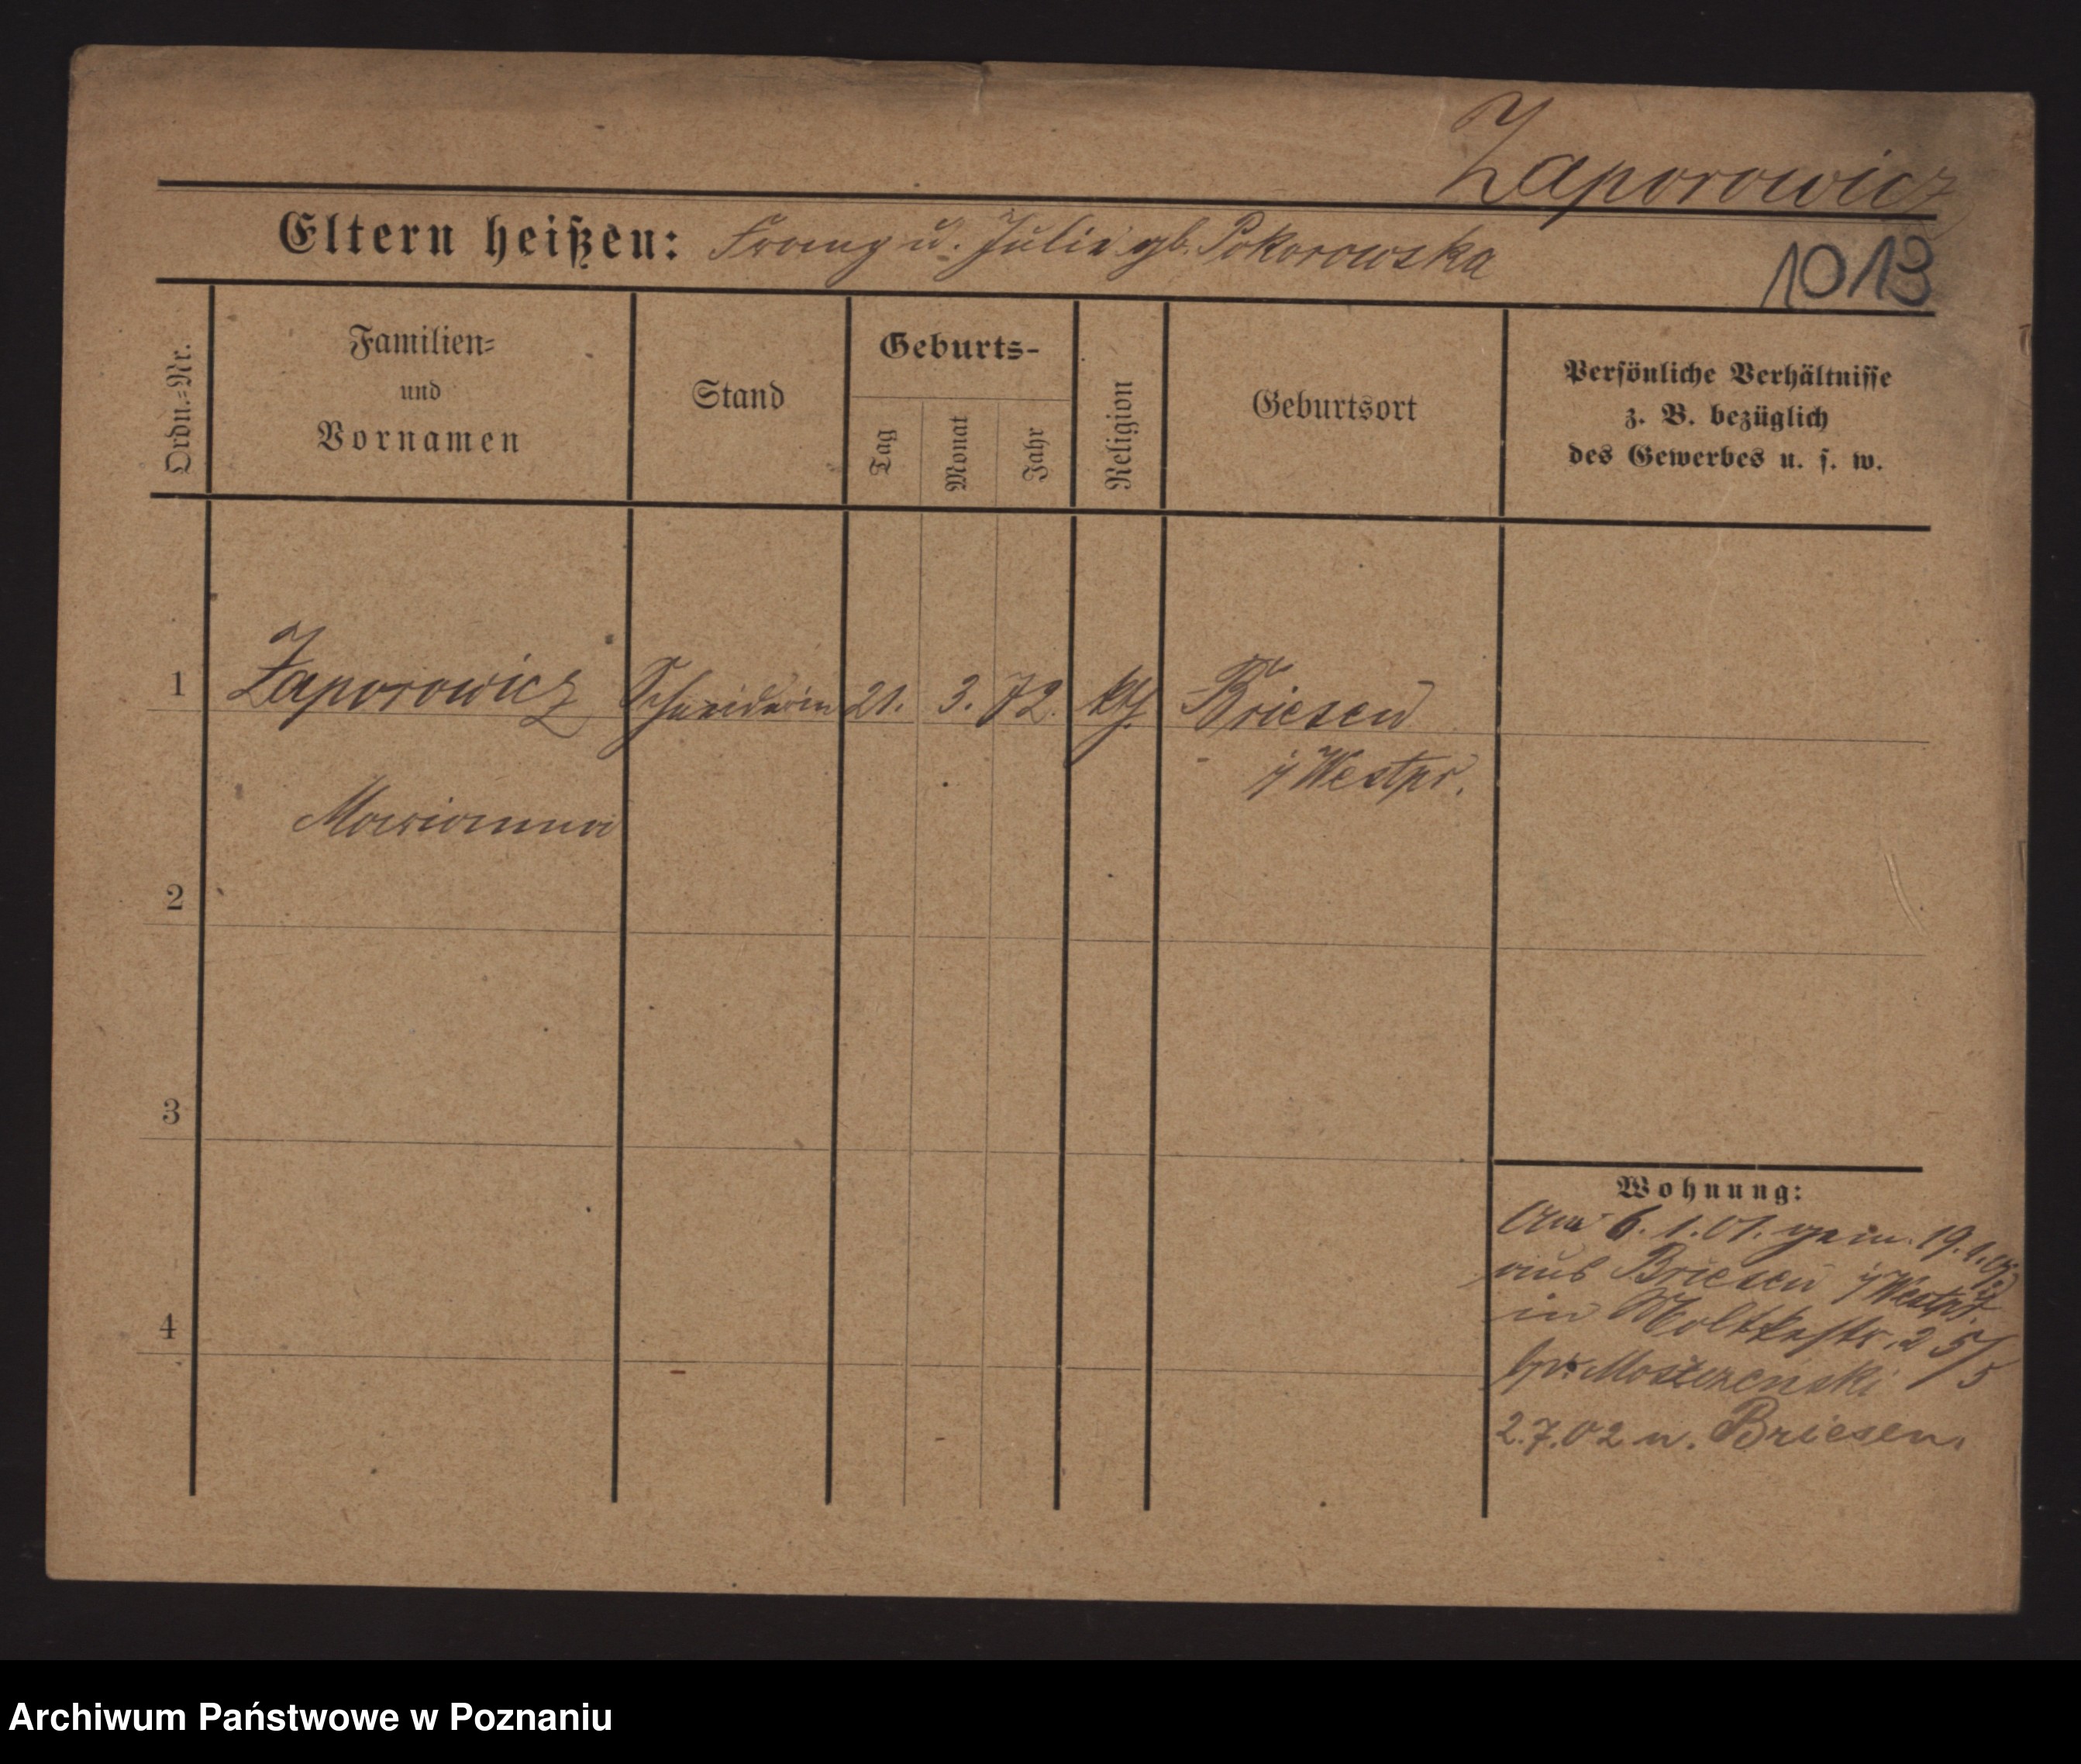 Zaporowicz
Eltern heißen: Franz u. Julie gb. Pokorowska
1013
Ordn.-Nr.
Familien-
und
Vornamen
Stand
Geburts-
Tag
Monat
Jahr
Religion
Geburtsort
Persönliche Verhältnisse
z. B. bezüglich
des Gewerbes u. s. w.
1 Zaporowicz Schneiderin 21. 3. 72. kth. Briesen
i/Westpr.
Marianna
2
3
4
Wohnung:
Am 6. 1. 01. gem. 19. 1. 01
aus Briesen i/Westpr.
in Moltkestr. 25/5
bei
2.7.02 n. Briesen.
Archiwum Państwowe w Poznaniu